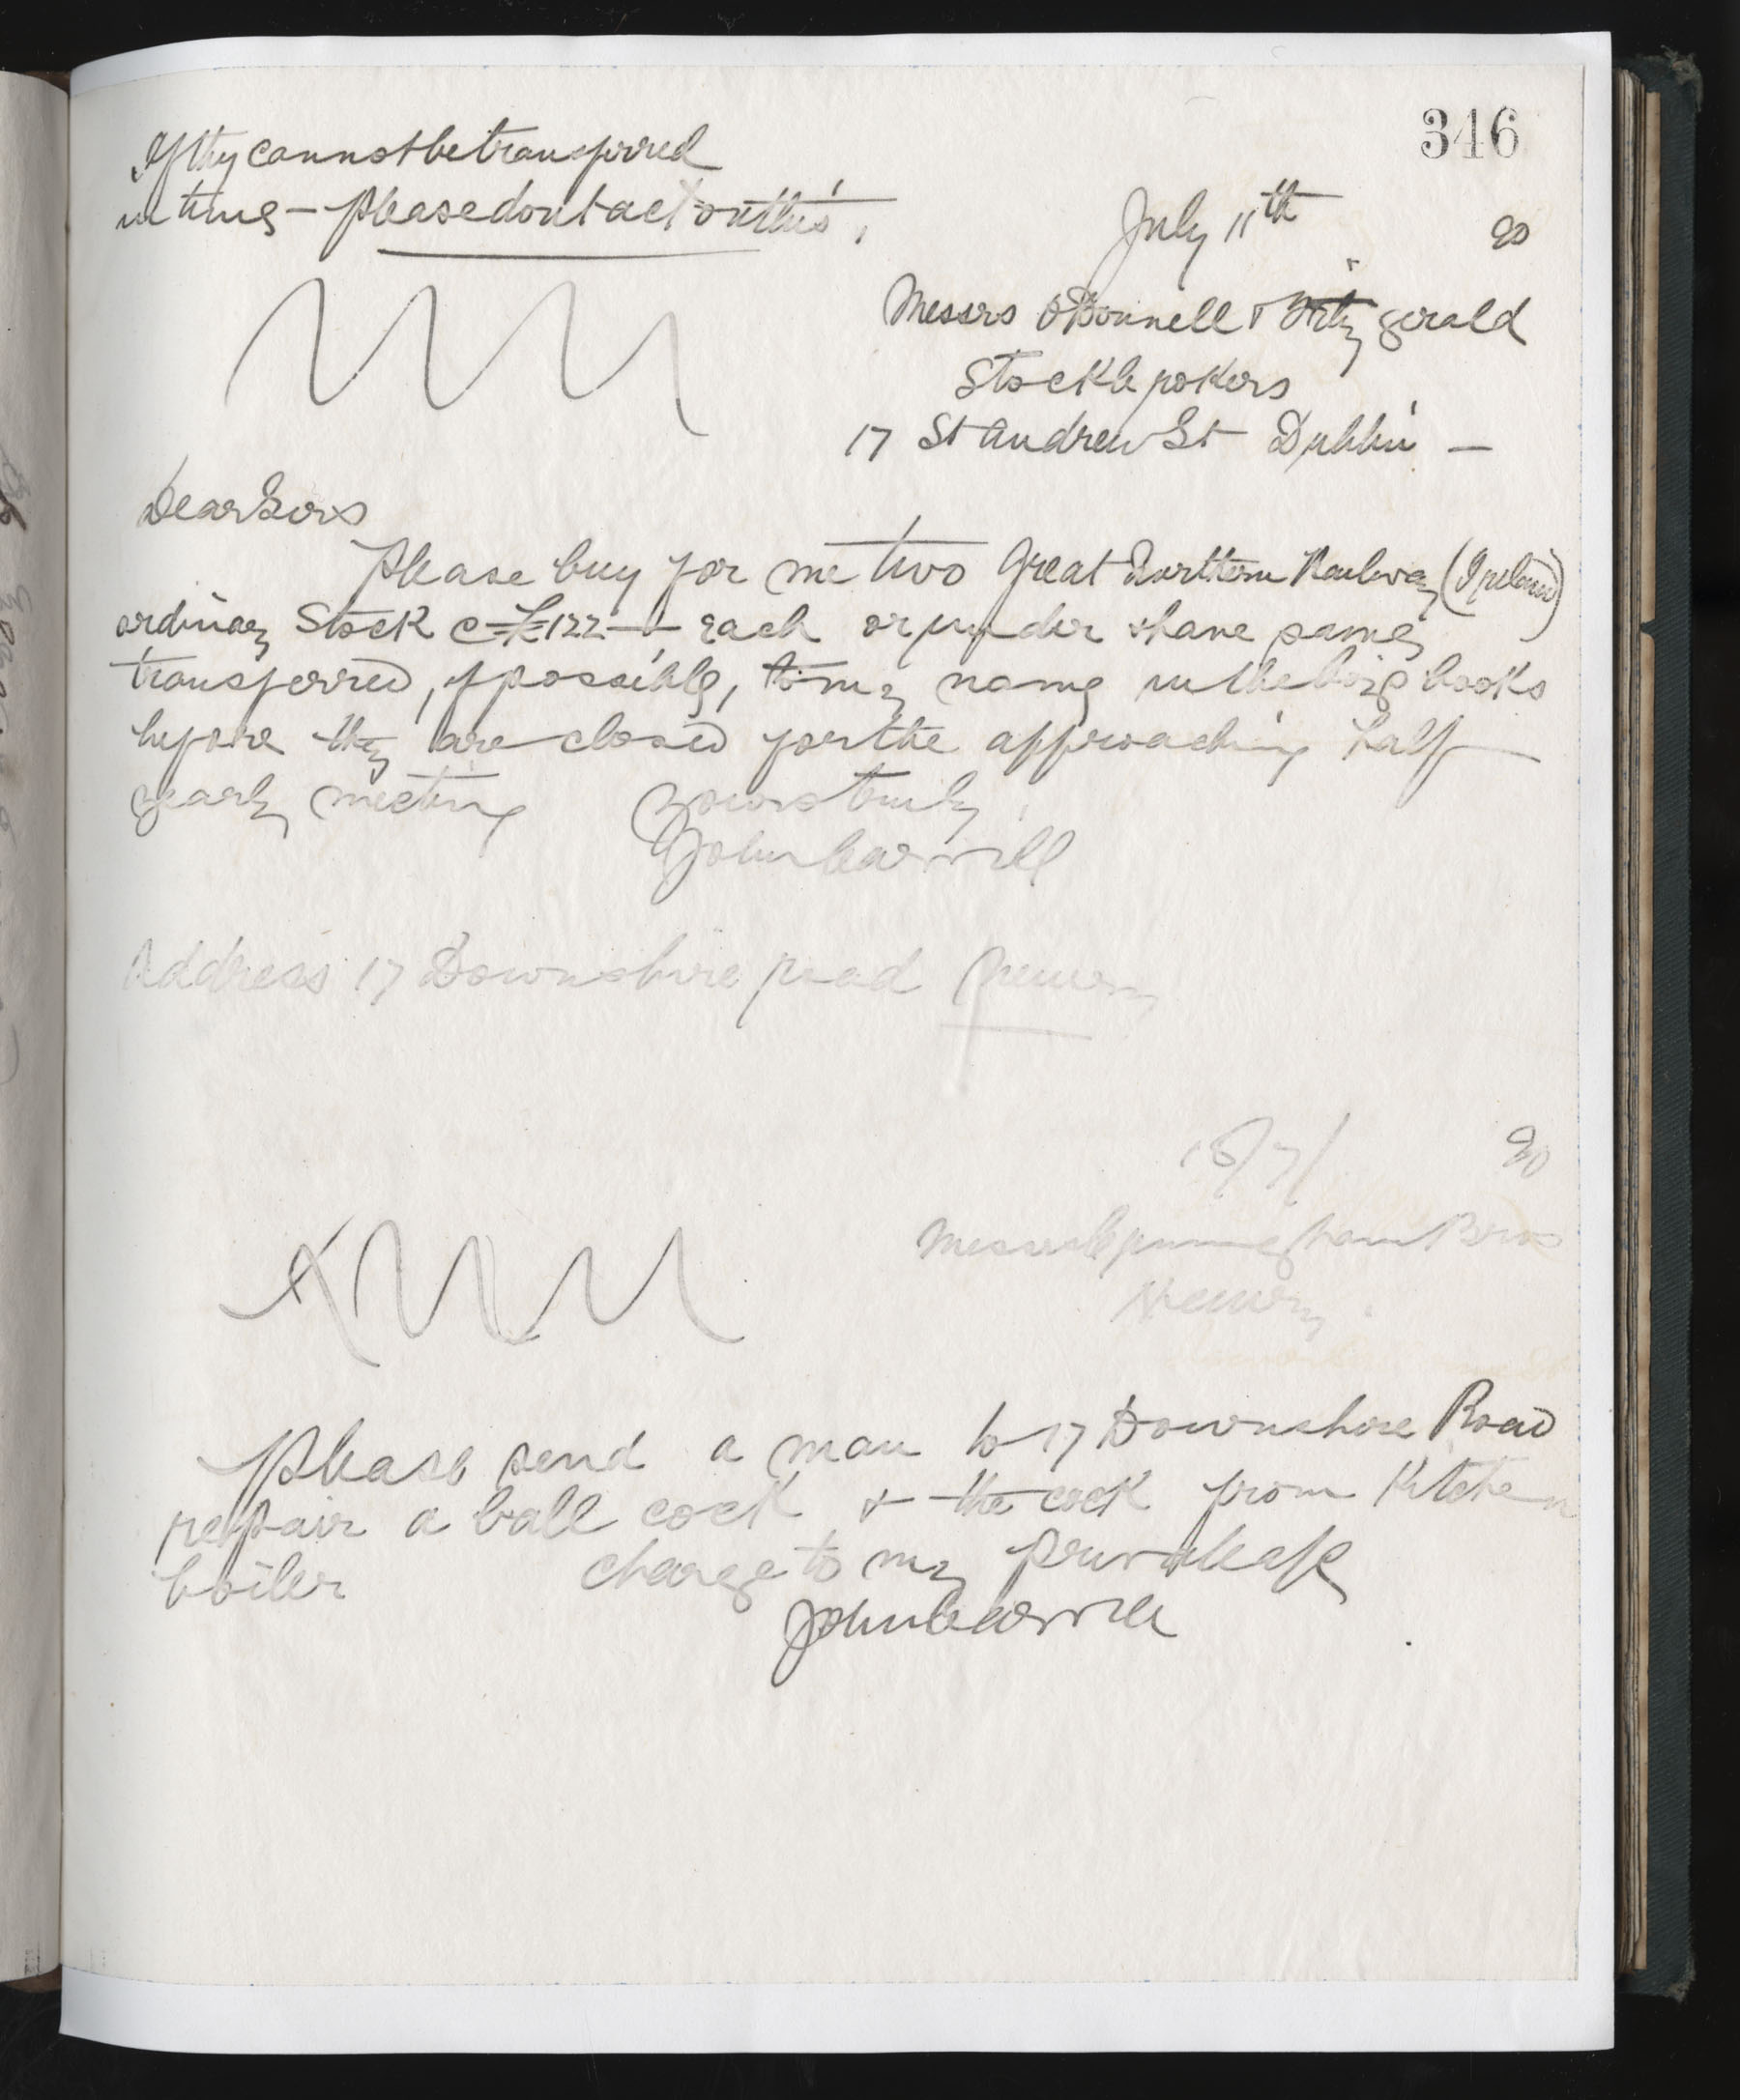 346
If they cannot be transferred
in time - please dont act on this.
July 11th 90
Messrs O'Donnell & Fitzgerald
Stockbrokers
17 St Andrew St Dublin -
Dear Sirs
Please buy for me two Great Northern Railway (Ireland)
ordinary Stock @ £122 - each or under & have same
transferred, if possible, to my name in the books
before they are closed for the approaching half
yearly meeting Yours truly,
John Carvill
Address 17 Downshire road Newry
15/7/ 90
Messrs Cunningham Bros
Newry
Please send a man to 17 Downshire Road
repair a ball cock & the cock from Kitchen
boiler charge to my private a/c
John Carvill